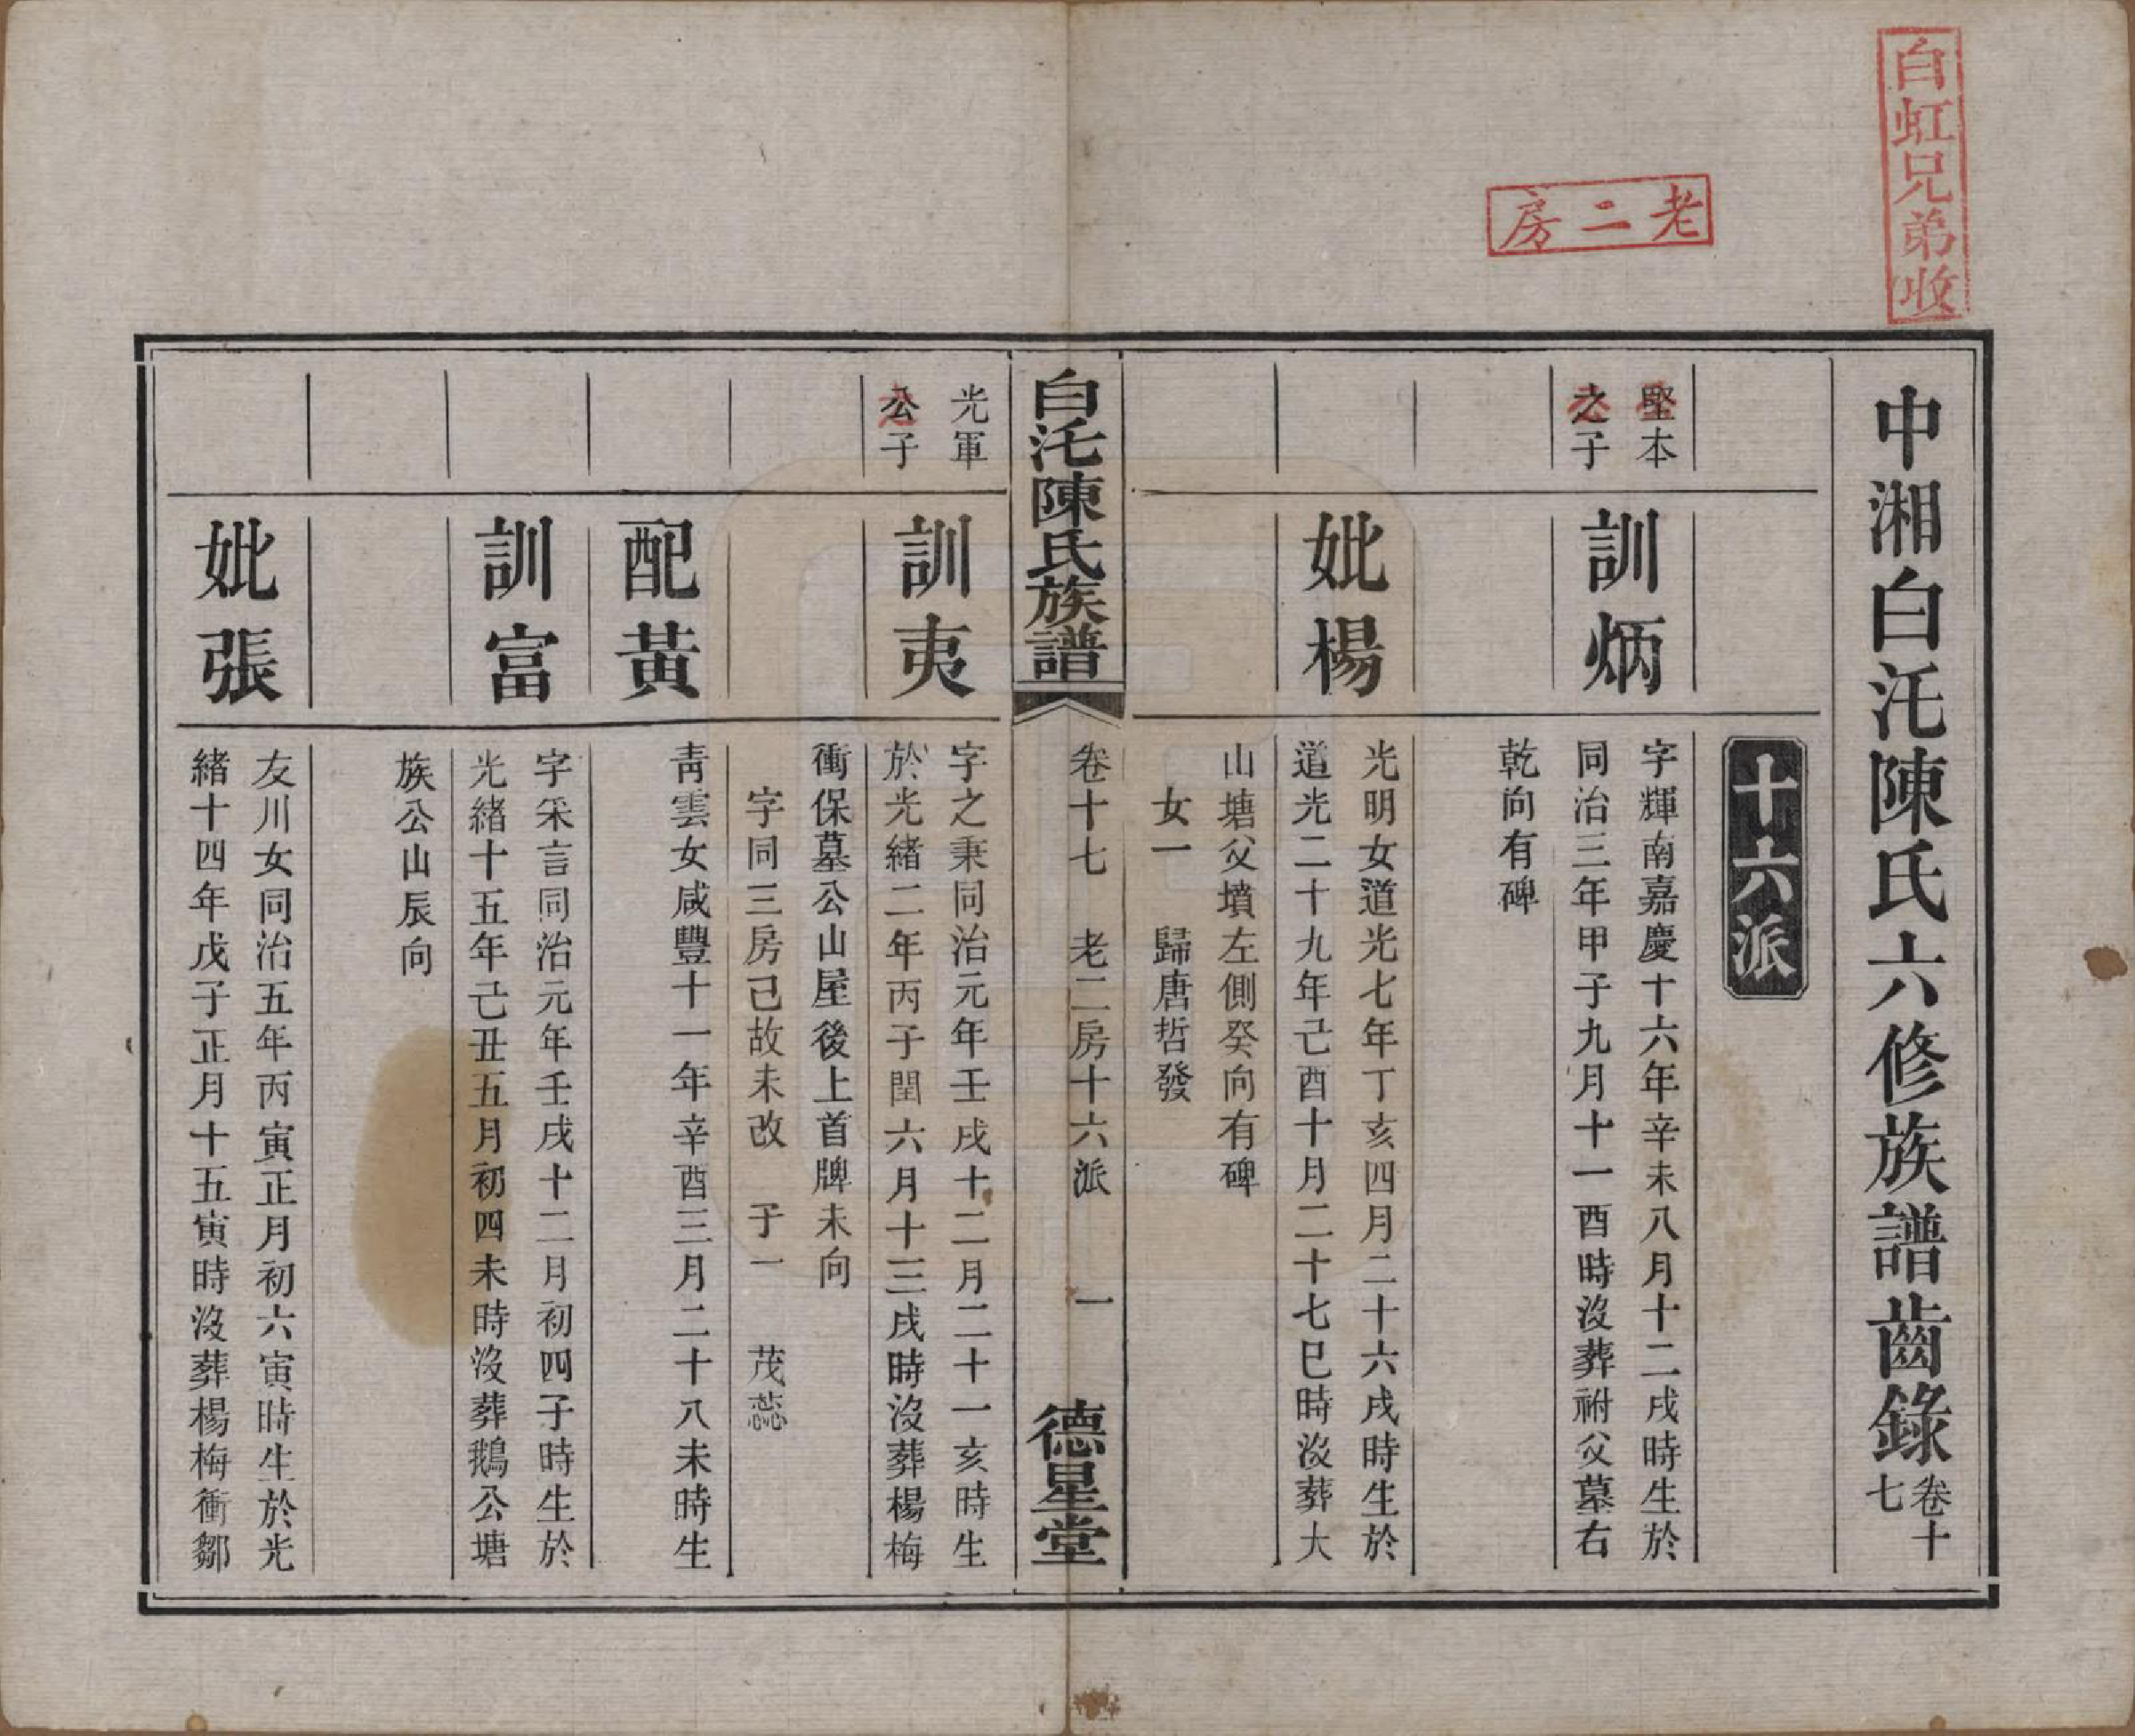 白虹兄弟收
老二房
中湘白沰陳氏六修族譜齒錄
卷十
七
十六派
堅本
之子
訓炳
字輝南嘉慶十六年辛未八月十二戌時生於
同治三年甲子九月十一酉時沒葬祔父墓右
乾向有碑
妣楊
光明女道光七年丁亥四月二十六戌時生於
道光二十九年己酉十月二十七巳時沒葬大
山塘父墳左側癸向有碑
女一 歸唐哲發
白沰陳氏族譜
卷十七 老二房十六派 一
德星堂
光軍
公子
訓夷
字之秉同治元年壬戌十二月二十一亥時生
於光緒二年丙子閏六月十三戌時沒葬楊梅
衝保墓公山屋後上首牌未向
字同三房己故未改 子一 茂蕊
配黃
靑雲女咸豐十一年辛酉三月二十八未時生
訓富
字采言同治元年壬戌十二月初四子時生於
光緒十五年己丑五月初四未時沒葬鵝公塘
族公山辰向
妣張
友川女同治五年丙寅正月初六寅時生於光
緒十四年戊子正月十五寅時沒葬楊梅衝鄒